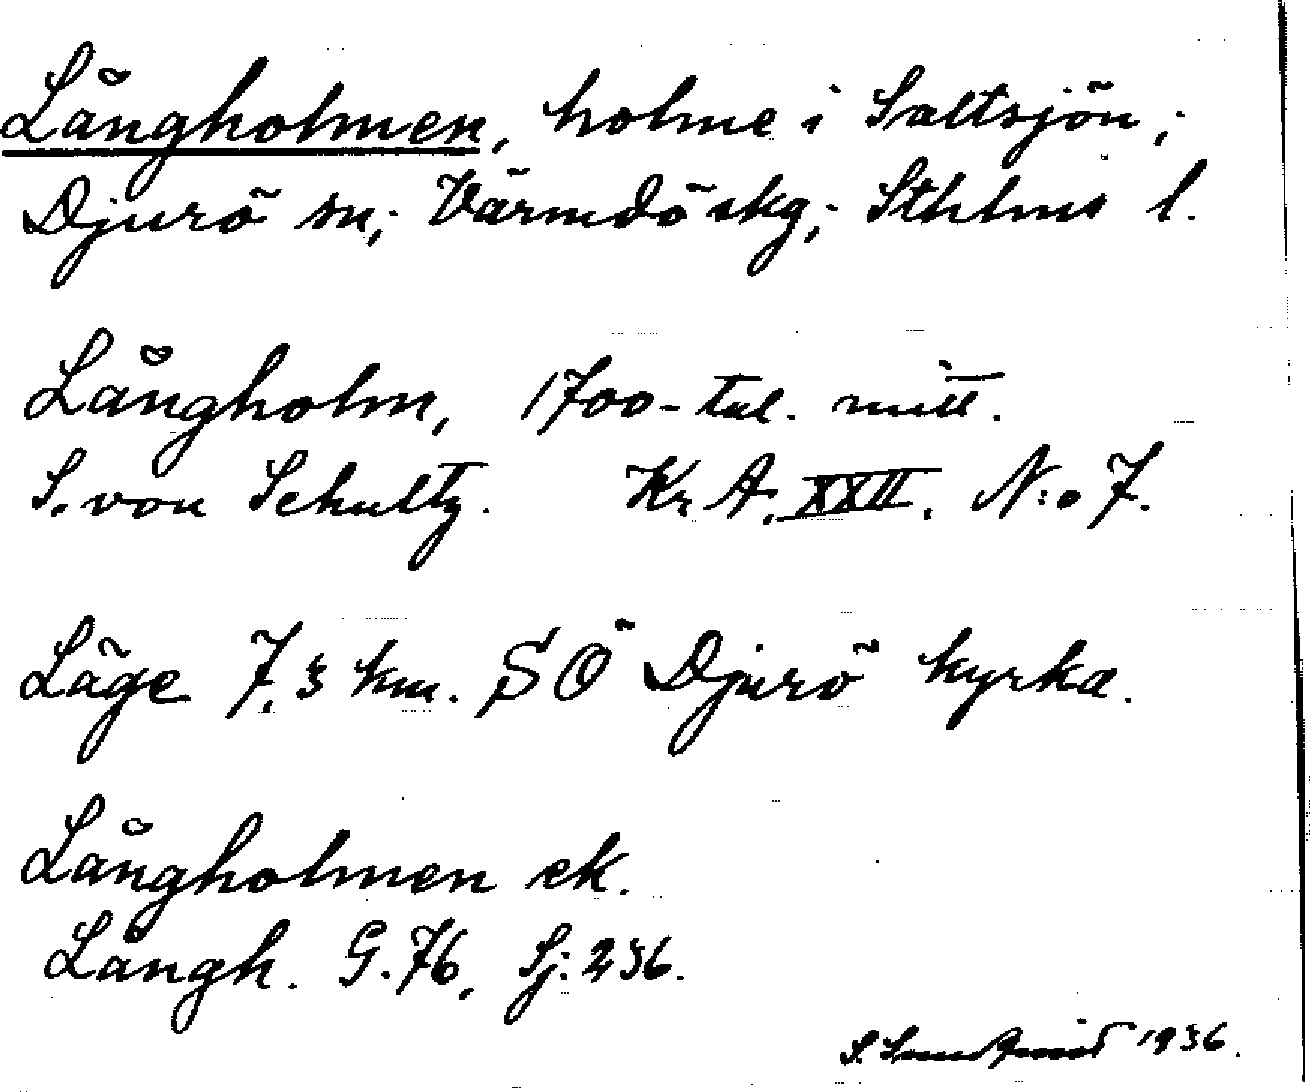 Långholmen, holme i Saltsjön;
Djurö sn; Värmdö skg; Sthlms l.
Långholm, 1700-tal. mitt.
S. von Schultz. Kr A. XXII. N:o 7.
Läge 7,3 km. SÖ Djurö kyrka.
Långholmen ek.
Långh. G. 76, Sj: 236.
S. 1936.